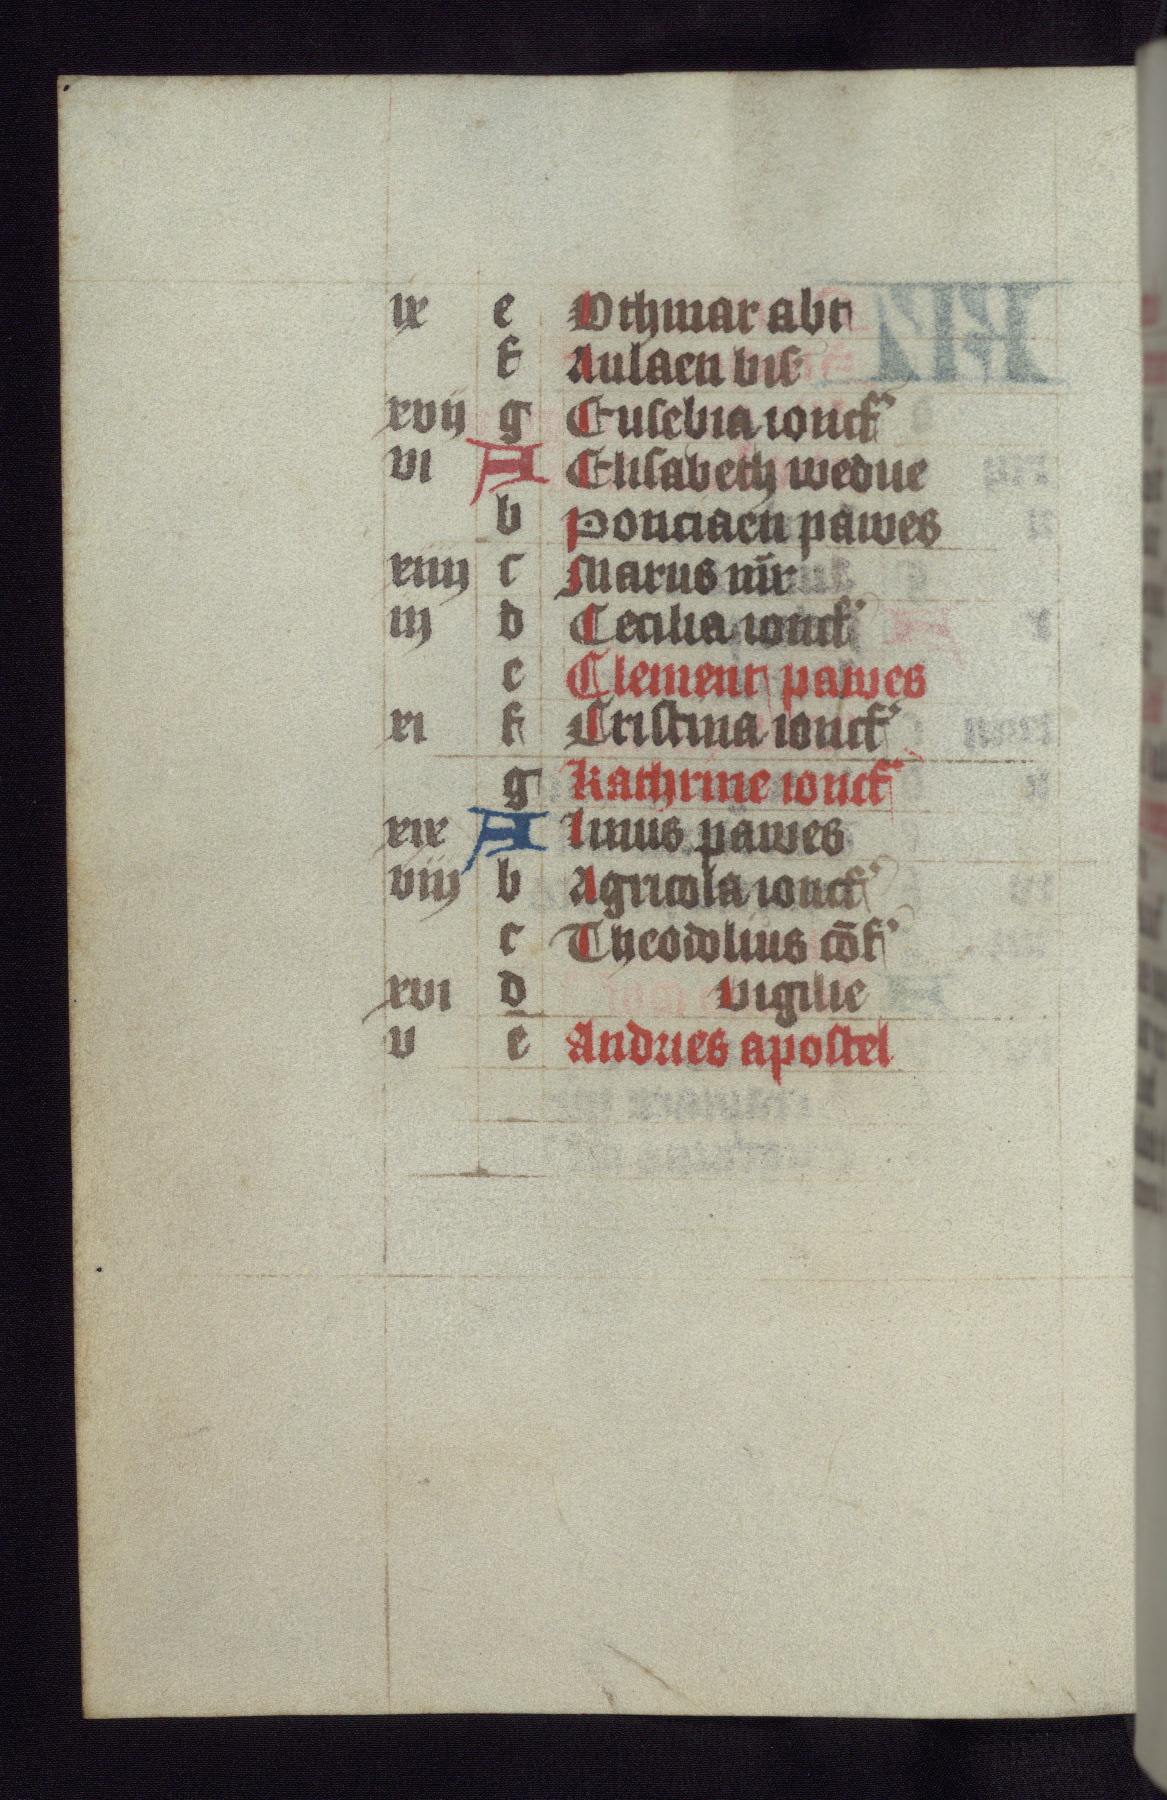 ix e Othmar abt
f Aulaen bis
xvij g Eusebia ionckf'
vi A Elisabeth wedue
b Ponciaen pawes
xiiij c Marus mr̄
iij d Cecilia ionckf'
e Clement pawes
xi f Cristina ionckf'
g Kathrine ionckf'
xix A linus pawes
viij b Agricola ionckf'
c Theodolius cōf'
xvi d vigilie
v e Andries apostel